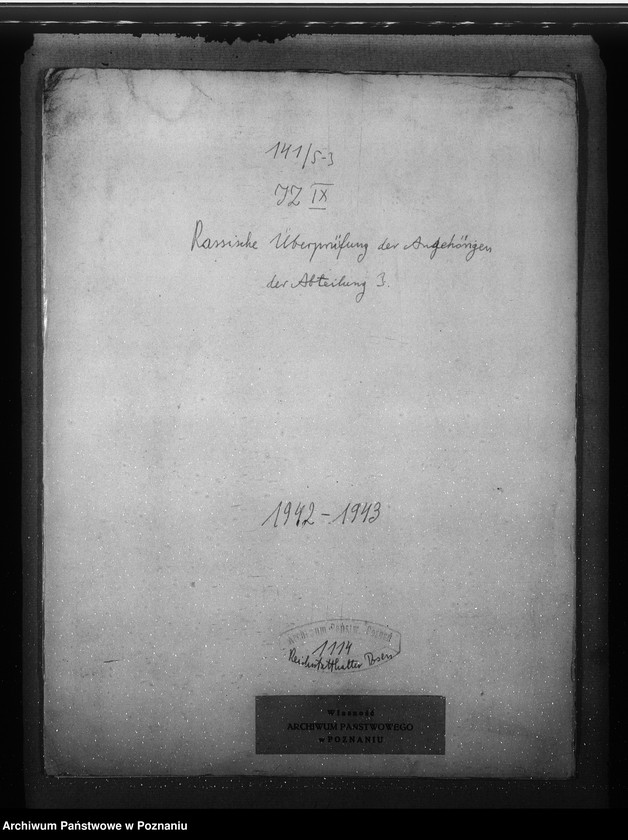 141/5-3
JZ IX
Rassische Überprüfung der Angehörigen
der Abteilung 3.
1942-1943
Archiwum Państw. Poznań
1114
Reichsstatthalter Posen
Własność
ARCHIWUM PAŃSTWOWEGO
w POZNANIU
Archiwum Państwowe w Poznaniu